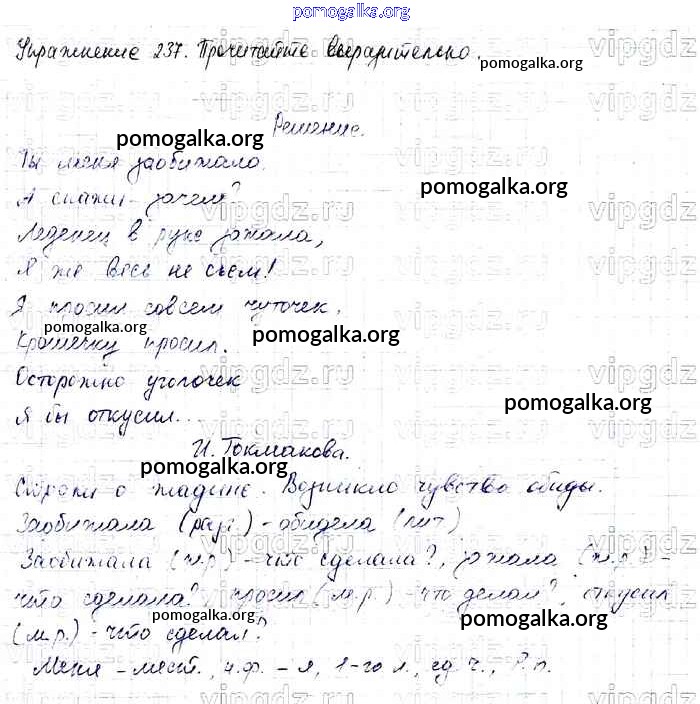 pomogalka.org
Упражнение 237. Прочитайте выразительно.
pomogalka.org
Решение.
pomogalka.org
Ты меня заобижала.
А скажи - зачем?
pomogalka.org
Леденец в руке зажала,
Я же весь не съем!
Я просил совсем чуточек,
pomogalka.org
pomogalka.org
Крошечку просил.
Осторожно уголочек
pomogalka.org
Я бы откусил...
И. Токмакова.
pomogalka.org
Строки о жадине. Возникло чувство обиды.
Заобижала (разг.) - обидела (лит)
Заобижала (ж.р.) - что сделала?, зажала (ж.р.) -
что сделала?, просил (м.р.) - что делал?, откусил
pomogalka.org
pomogalka.org
(м.р.) - что сделал?
Меня - мест., н.ф. - я, 1-го л., ед.ч., Р.п.
vipgdz.ru